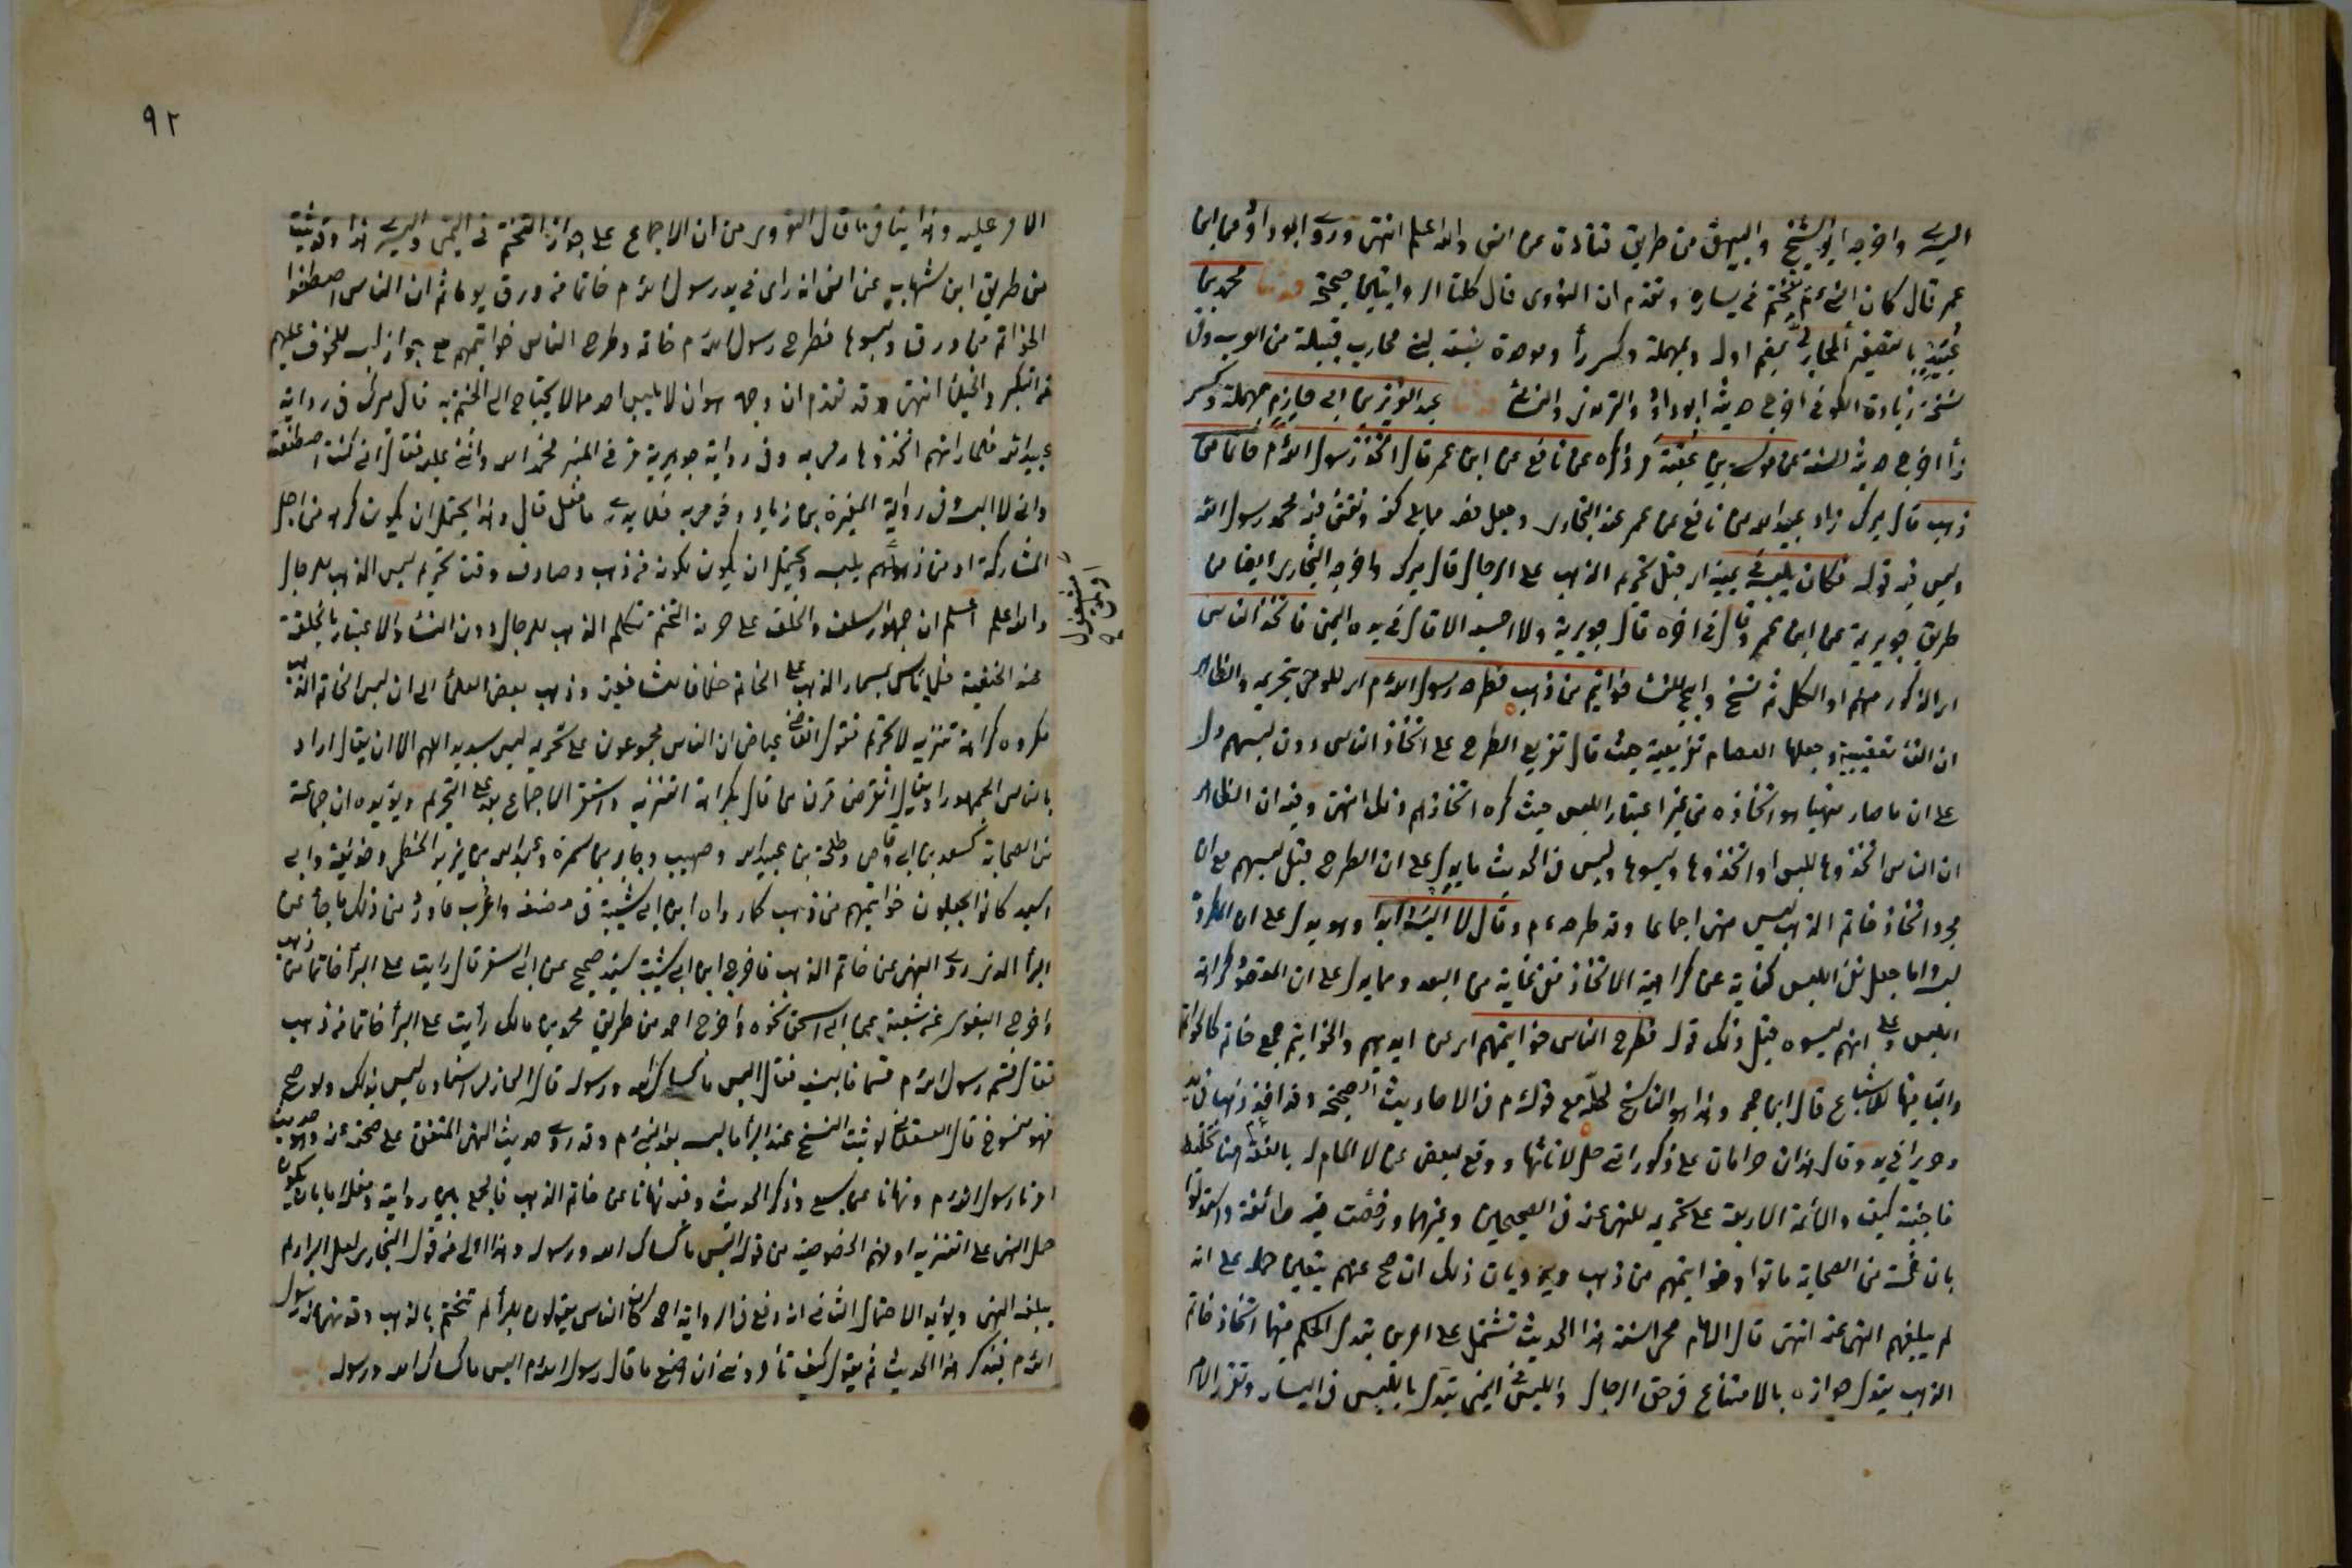 اليسرى واخرجه ابو الشيخ والبيهقى من طريق قتادة عن انس والله اعلم انتهى وروى ابو داود من ابن
عمر قال كان النبى عم يتختم فى يساره وتقدم ان النووى قال كلتا الروايتين صحيحة حدثنا محمد بن
عبيد بالتصغير المحاربى بضم اوله وبمهملة وكسر راء وموحدة نسبة لبنى محارب قبيلة من العرب وفى
نسخة زيادة الكوفى اخرج حديثه ابو داود والترمذى والنسائى حدثنا عبد العزيز بن ابى حازم مهملة وكسر
زاء اخرج حديثه الستة عن موسى بن عقبة مر ذكره عن نافع عن ابن عمر قال اتخذ رسول الله م خاتما من
ذهب قال ميرك زاد عبيد الله عن نافع عن عمر عند البخارى وجعل فصه مما يلى كفه ونقش فيه محمد رسول الله
وليس فيه قوله فكان يلبسه فى يمينه اى قبل تحريم الذهب على الرجال قال ميرك واخرجه البخارى ايضا من
طريق جويرية عن ابن عمر وقال فى اخره قال جويرية ولا احسبه الا قال فى يده اليمنى فاتخذ الناس
اى الذكور منهم او الكل ثم نسخ وابيح للنساء خواتيم من ذهب فطرحه رسول الله م اى للوحى بتحريمه والظاهر
ان الفاء تعقيبية وجعلها العصام تفريعية حيث قال تفريع الطرح على اتخاذ الناس دون لبسهم دل
على ان ما صار منهيا هو اتخاذه من غير اعتبار اللبس حيث كره اتخاذهم ذلك انتهى وفيه ان الظاهر
ان الناس اتخذوها للبس او اتخذوها ولبسوها وليس فى الحديث ما يدل على ان الطرح قبل لبسهم مع ان
مجرد اتخاذ خاتم الذهب ليس منهى اجماعا وقد طرحه عم وقال لا البسه ابدا وهو يدل على ان المطروح
لبسه واما جعل نفى اللبس كناية عن كراهية الاتخاذ ففى غاية من البعد ومما يدل على ان المقصود كراهة
اللبس وعلى انهم لبسوه قبل ذلك قوله فطرح الناس خواتيمهم اى عن ايديهم والخواتيم جمع خاتم كالخواتم
والياء فيها للاشباع قال ابن حجر وهذا هو الناسخ لحله مع قوله م فى الاحاديث الصحيحة وقد اخذ ذهبا فى يد
وحريرا فى يد وقال هذان حرامان على ذكور امتى حل لاناثها ووقع لبعض من لا المام له بالفقه هنا تخليط
فاجتنبه كيف والائمة الاربعة على تحريمه للنهى عنه فى الصحيحين وغيرهما ورخصت فيه طائفة واستدلوا
بان خمسة من الصحابة ماتوا وخواتيمهم من ذهب ويرد بان ذلك ان صح عنهم يتعين حمله على انه
لم يبلغهم النهى عنه انتهى قال الامام محى السنة هذا الحديث تشتمل على امرين تبدل الحكم فيهما اتخاذ خاتم
الذهب تبدل جوازه بالامتناع فى حق الرجال واللبس فى اليمنى تبدل باللبس فى اليسار وتقرر الامر
٩٢
الامر عليه وهذا ينافى ما قال النووى من ان الاجماع على جواز التختم فى اليمنى واليسرى هذا وقد ثبت
من طريق ابن شهاب عن انس انه راى فى يد رسول الله م خاتما من ورق يوما ثم ان الناس اصطنعوا
الخواتم من ورق ولبسوها فطرح رسول الله م خاتمه وطرح الناس خواتيمهم مع جواز لبسه للخوف عليهم
من التكبر والخيلاء انتهى وقد تقدم ان وجهه هو ان لا يلبس احد مما لا يحتاج الى الختم به قال ميرك فى رواية
عبيد الله فلما راهم اتخذوها رمى به وفى رواية جويرية فرقى المنبر فحمد الله واثنى عليه فقال انى كنت اصطنعته
وانى لا البسه فى رواية المغيرة بن زياد فرمى به فلا يدرى ما فعل قال وهذا يحتمل ان يكون كرهه من اجل
المشاركة او من زهوهم بلبسه ويحتمل ان يكون لكونه من ذهب وصادف وقت تحريم لبس الذهب للرجال
والله اعلم اعلم ان جمهور السلف والخلف على حرمة التختم بخاتم الذهب للرجال دون النساء والاعتبار بالحلقة
عند الحنفية فلا باس بمسمار الذهب على الخاتم خلافا للشافعية وذهب بعض العلماء الى ان لبس الخاتم الذهب
مكروه كراهة تنزيه لا تحريم فقول القاضى عياض ان الناس مجمعون على تحريمه ليس بسديد اللهم الا ان يقال اراد
بالناس الجمهور او يقال انقرض قرن من قال بكراهة التنزيه واستقر الاجماع بعد على التحريم ويؤيده ان جماعة
من الصحابة كسعد بن ابى وقاص وطلحة بن عبيد الله وصهيب وجابر بن سمرة وعبد الله بن يزيد الخطمى وحذيفة وابى
اسيد كانوا يجعلون خواتيمهم من ذهب كما رواه ابن ابى شيبة فى مصنفه واغرب ما ورد من ذلك ما جاء عن
البراء الذى روى النهى عن خاتم الذهب فاخرج ابن ابى شيبة بسند صحيح عن ابى السفر قال رايت على البراء خاتما من ذهب
واخرج البغوى عن شعبة عن ابى اسحق نحوه واخرج احمد من طريق محمد بن مالك رأيت على البراء خاتما من ذهب
فقال قسم رسول الله م قسما فالبسنيه فقال البس ما كساك الله ورسوله قال الحازمى اسناده ليس بذلك ولو صح
فهو منسوخ قال العسقلانى لو ثبت النسخ عند البراء ما لبسه بعد النبى م وقد روى حديث النهى المتفق على صحته عنه وهو حديث
امرنا رسول الله م ونهانا عن سبع وذكر الحديث وفيه نهانا عن خاتم الذهب فالجمع بين روايته وفعله اما بان يكون
حمل النهى على التنزيه او فهم الخصوصية من قوله البس ما كساك الله ورسوله وهذا اولى من قول البخارى لعل البراء لم
يبلغه النهى ويؤيد الاحتمال الثانى انه وقع فى الرواية احمد كان الناس يقولون للبراء لم تختم بالذهب وقد نهى عنه رسول
الله م فيذكر هذا الحديث ثم يقول كيف تأمرونى ان اضع ما قال رسول الله م البس ما كساك الله ورسوله